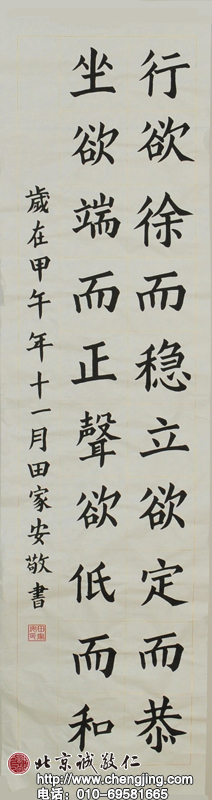 行欲徐而穏立欲定而恭
坐欲端而正聲欲低而和
歲在甲午年十一月田家安敬書
北京诚敬仁
www.chengjing.com
电话：010-69581665